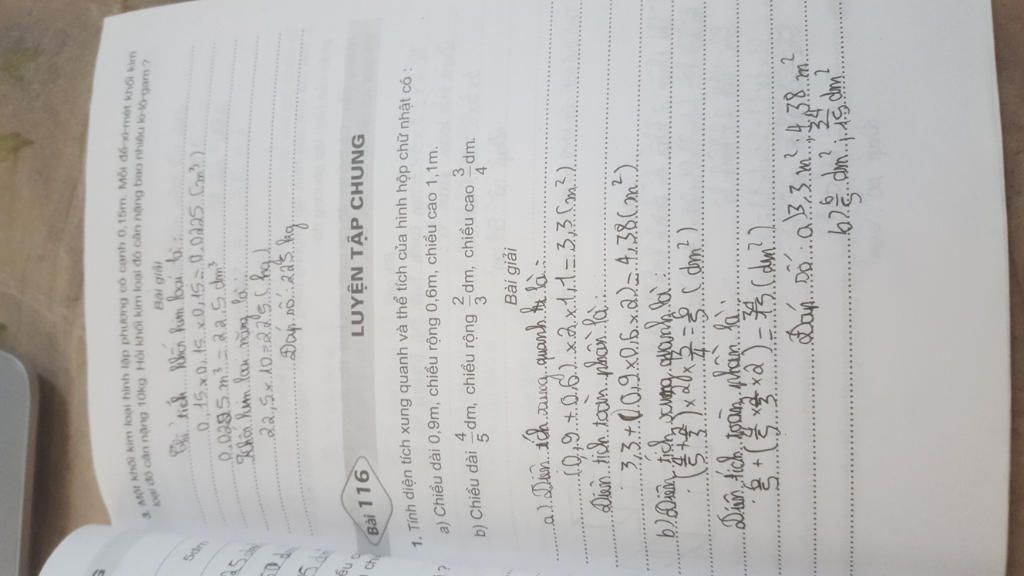 3. Một khối kim loại hình lập phương có cạnh 0,15m. Mỗi đề-xi-mét khối kim
loại đó cân nặng 10kg. Hỏi khối kim loại đó cân nặng bao nhiêu ki-lô-gam ?
Bài giải
Thể tích khối kim loại là:
0,15 x 0,15 x 0,15 = 0,0225 (m³)
0,0225 m³ = 22,5 dm³
Khối kim loại nặng là:
22,5 x 10 = 225 (kg)
Đáp số: 225 kg
Bài 116 LUYỆN TẬP CHUNG
1. Tính diện tích xung quanh và thể tích của hình hộp chữ nhật có :
a) Chiều dài 0,9m, chiều rộng 0,6m, chiều cao 1,1m.
b) Chiều dài 4/5 dm, chiều rộng 2/3 dm, chiều cao 3/4 dm.
Bài giải
a) Diện tích xung quanh là:
(0,9 + 0,6) x 2 x 1,1 = 3,3 (m²)
Diện tích toàn phần là:
3,3 + (0,9 x 0,6 x 2) = 4,38 (m²)
b) Diện tích xung quanh là:
(4/5 + 2/3) x 2 x 3/4 = 6/5 (dm²)
Diện tích toàn phần là:
6/5 + (4/5 x 2/3 x 2) = 34/15 (dm²)
Đáp số: a) 3,3 m²; 4,38 m²
b) 6/5 dm²; 34/15 dm²